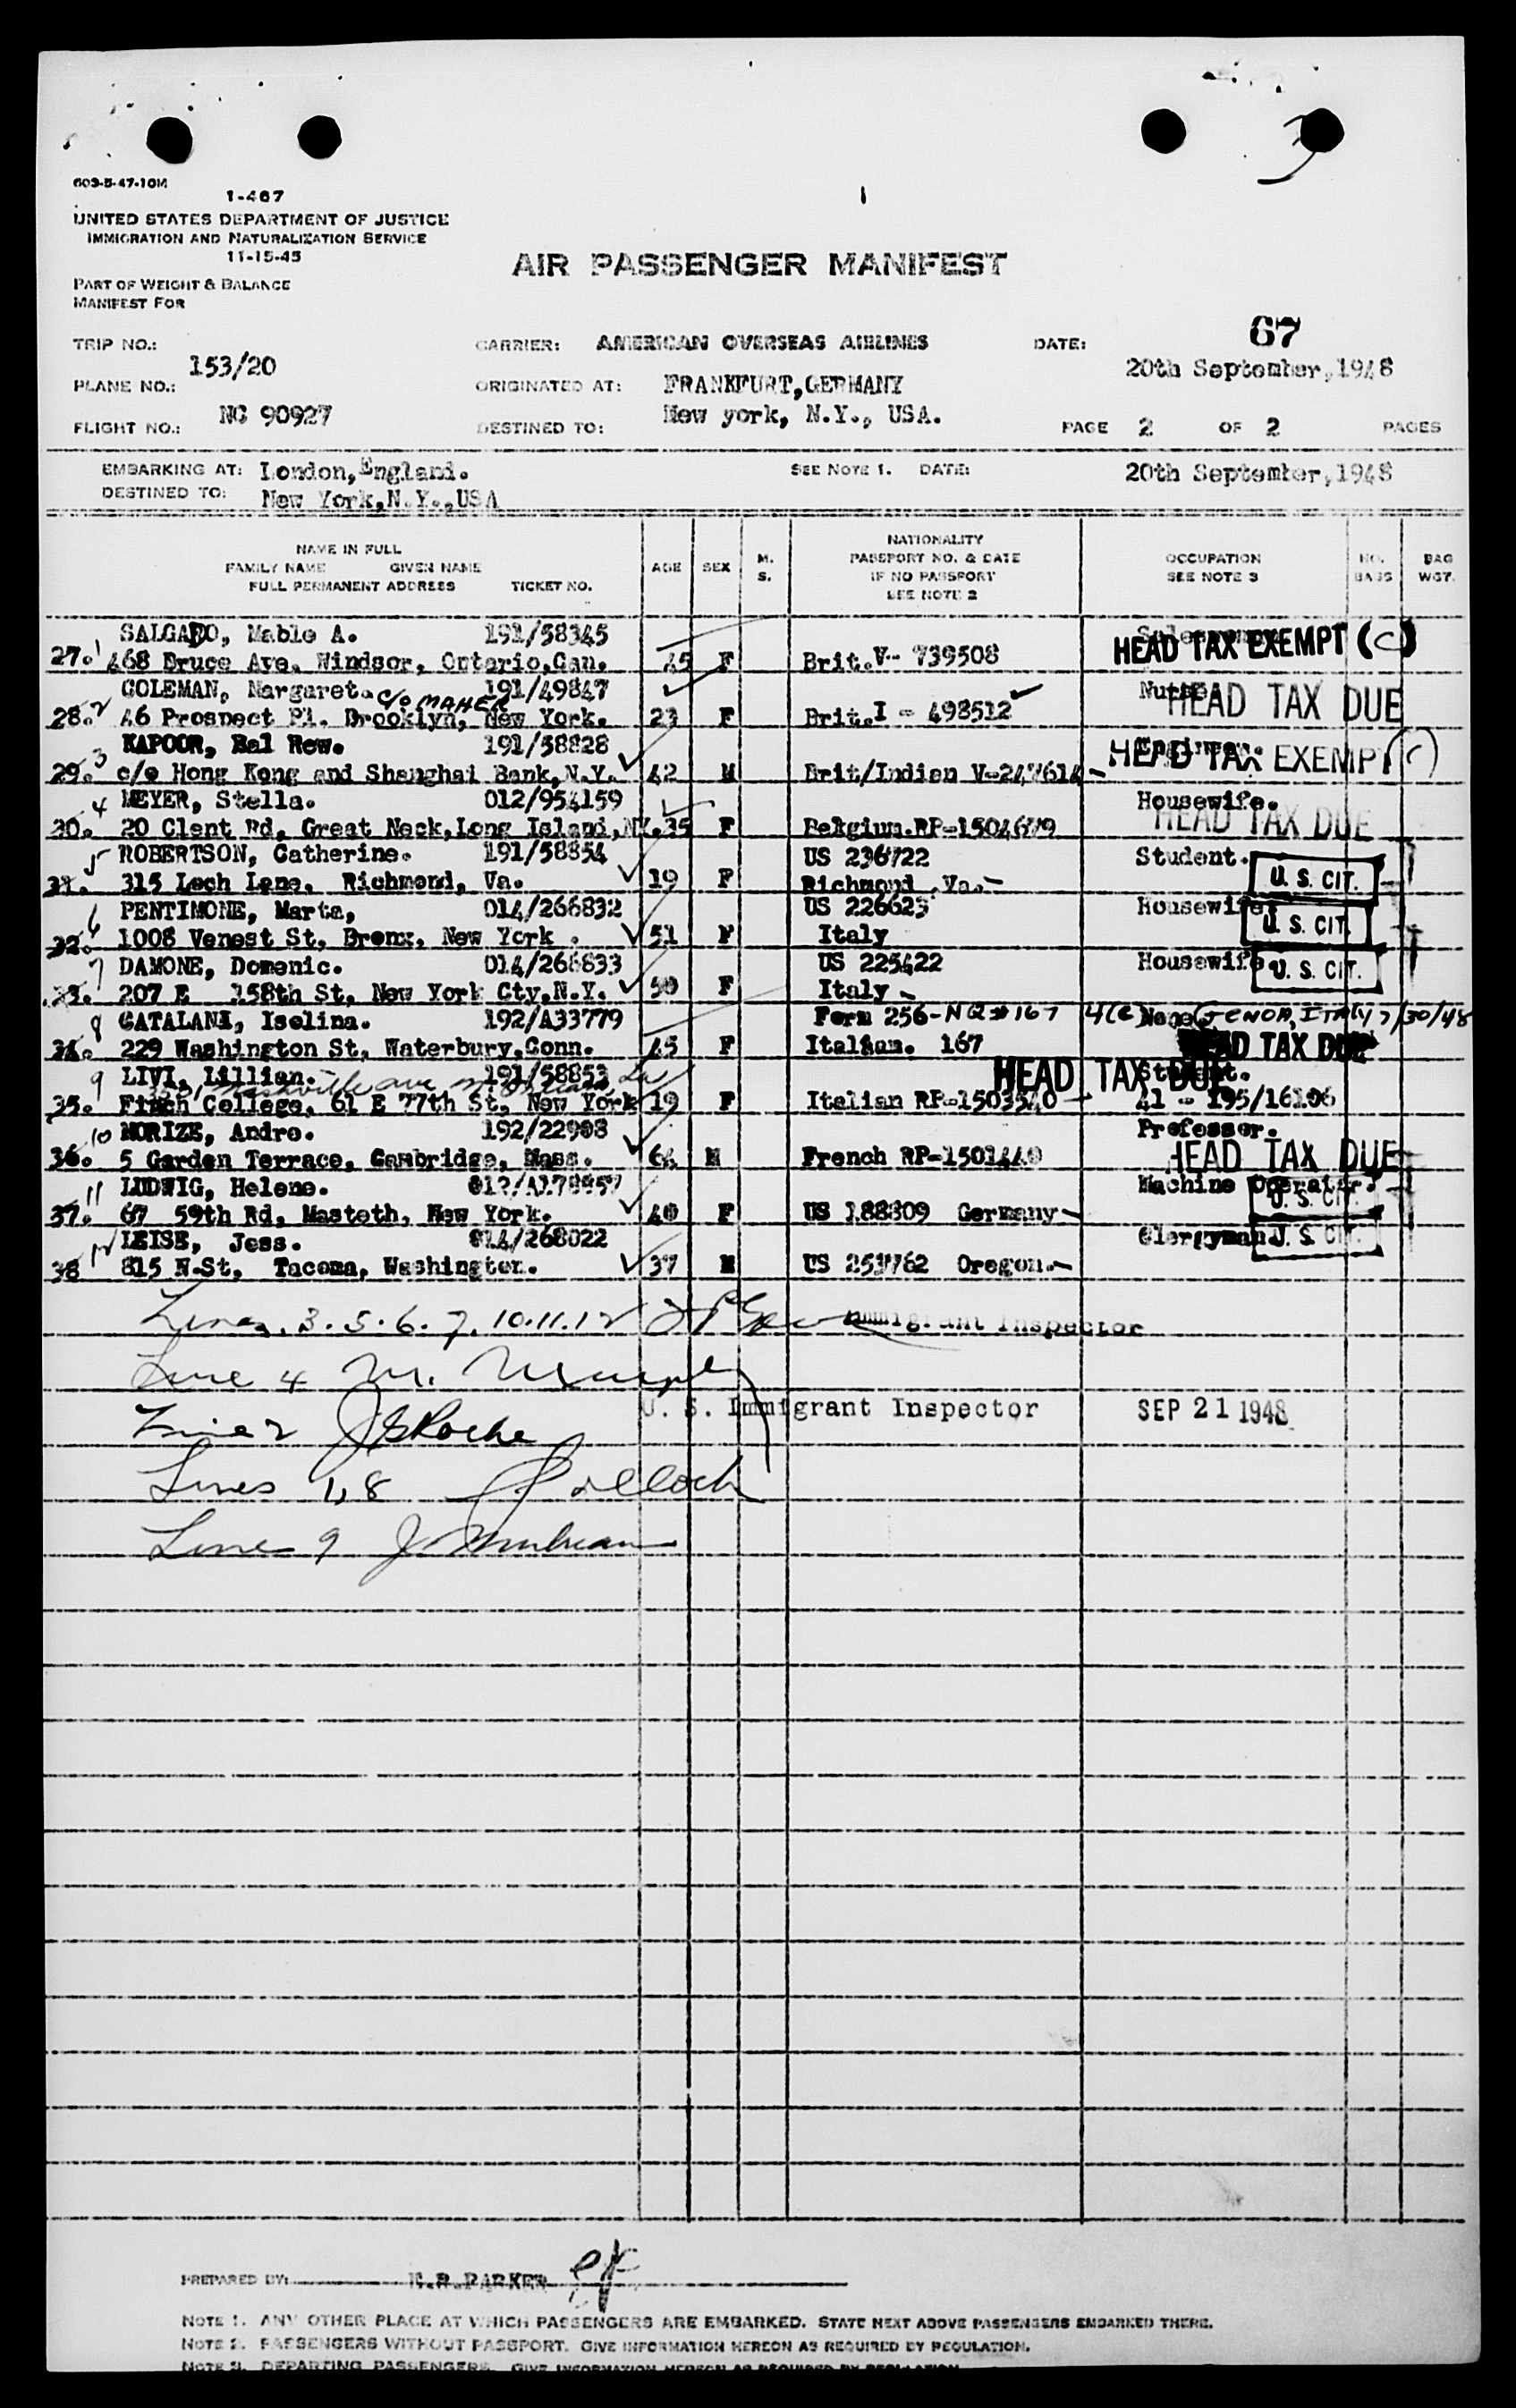 3
603-5-47-10M
1-467
UNITED STATES DEPARTMENT OF JUSTICE
IMMIGRATION AND NATURALIZATION SERVICE
11-15-45
AIR PASSENGER MANIFEST
PART OF WEIGHT & BALANCE
MANIFEST FOR
67
TRIP NO.: 153/20 CARRIER: AMERICAN OVERSEAS AIRLINES DATE: 20th September, 1948
PLANE NO.: NC 90927 ORIGINATED AT: FRANKFURT, GERMANY
FLIGHT NO.: DESTINED TO: New york, N.Y., USA. PAGE 2 OF 2 PAGES
EMBARKING AT: London, England. SEE NOTE 1. DATE: 20th September, 1948
DESTINED TO: New York, N.Y., USA
NAME IN FULL
FAMILY NAME GIVEN NAME
FULL PERMANENT ADDRESS TICKET NO. AGE SEX M. S. NATIONALITY PASSPORT NO. & DATE IF NO PASSPORT SEE NOTE 2 OCCUPATION SEE NOTE 3 NO. BAGS BAG WGT.
SALGADO, Mable A. 191/58345
27. 1 468 Bruce Ave, Windsor, Ontario, Can. 45 F Brit. V- 739508 HEAD TAX EXEMPT (C)
COLEMAN, Margaret. c/o MAHER 191/49847 Nurse HEAD TAX DUE
28. 2 46 Prospect Pl. Brooklyn, New York. 23 F Brit. I - 498512
KAPOOR, Bal Rew. 191/58828 Engineer. HEAD TAX EXEMPT (C)
29. 3 c/o Hong Kong and Shanghai Bank, N.Y. 42 M Brit/Indian V-247614
4 MEYER, Stella. 012/954159 Housewife. HEAD TAX DUE
30. 20 Clent Rd, Great Neck, Long Island, NY. 35 F Belgium. RP-1504679
5 ROBERTSON, Catherine. 191/58854 US 236722 Student.
31. 315 Loch Lane, Richmond, Va. 19 F Richmond, Va. U. S. CIT.
6 PENTIMONE, Marta, 014/266832 US 226623 Housewife
32. 1008 Venest St, Bronx, New York . 51 F Italy U. S. CIT.
7 DAMONE, Domenic. 014/266833 US 225422 Housewife
33. 207 E 158th St, New York Cty, N.Y. 50 F Italy U. S. CIT.
8 CATALANI, Isolina. 192/A33779 Form 256 - NQ # 167 4(C) None GENOA, ITALY 7/30/48
34. 229 Washington St, Waterbury, Conn. 45 F Italian. 167 HEAD TAX DUE
9 LIVI, Lillian. 191/58853 HEAD TAX DUE Student.
35. Finch College, 61 E 77th St, New York 19 F Italian RP-1503540 41 - 195/16106
10 MORIZE, Andre. 192/22908 Professor.
36. 5 Garden Terrace, Cambridge, Mass. 64 M French RP-1501440 HEAD TAX DUE
11 LUDWIG, Helene. Machine Operator.
37. 67 59th Rd, Masteth, New York. 40 F US 188309 Germany U. S. CIT.
12 LEISE, Jess. 014/268022 Clergyman
38 815 N.St, Tacoma, Washington. 37 M US 251762 Oregon. U. S. CIT.
Lines. 3. 5. 6. 7. 10. 11. 12 Immigrant Inspector
Line 4 M. Murphy
U. S. Immigrant Inspector SEP 21 1948
Line 2 J G Roche
Lines 1, 8
Line 9
PREPARED BY: E.R. PARKER
NOTE 1. ANY OTHER PLACE AT WHICH PASSENGERS ARE EMBARKED. STATE NEXT ABOVE PASSENGERS EMBARKED THERE.
NOTE 2. PASSENGERS WITHOUT PASSPORT. GIVE INFORMATION HEREON AS REQUIRED BY REGULATION.
NOTE 3. DEPARTING PASSENGERS. GIVE INFORMATION HEREON AS REQUIRED BY REGULATION